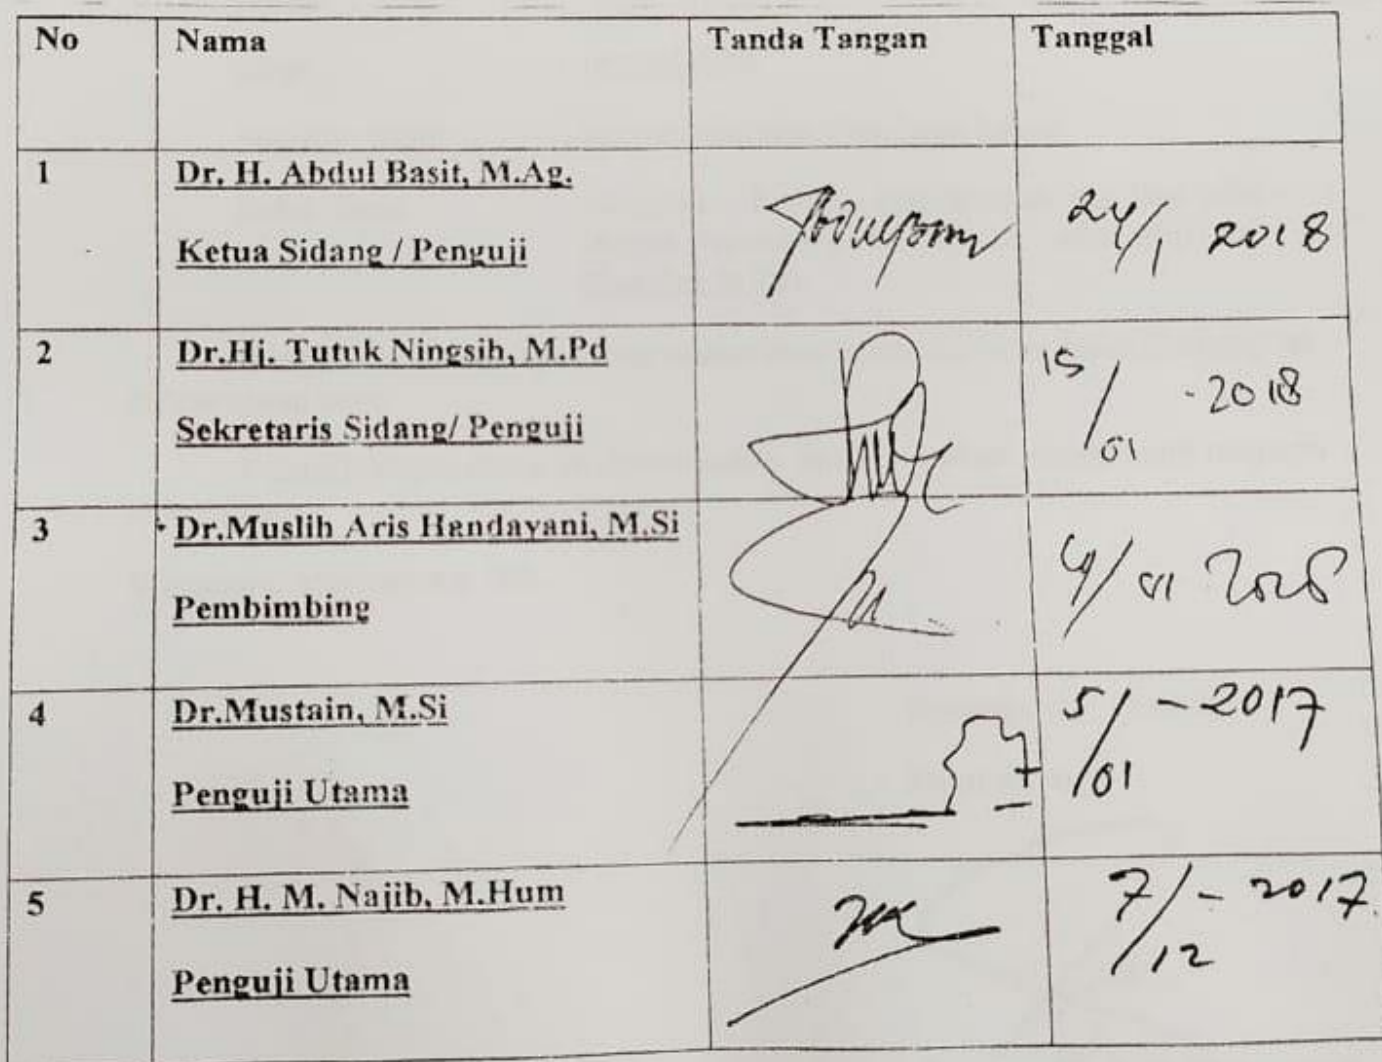 No Nama Tanda Tangan Tanggal
1 Dr. H. Abdul Basit, M.Ag.
Ketua Sidang / Penguji
24/1 2018
2 Dr.Hj. Tutuk Ningsih, M.Pd
Sekretaris Sidang/ Penguji
15/01 -2018
3 Dr.Muslih Aris Handayani, M.Si
Pembimbing
4/01 2018
4 Dr.Mustain, M.Si
Penguji Utama
5/01 - 2017
5 Dr. H. M. Najib, M.Hum
Penguji Utama
7/12 - 2017